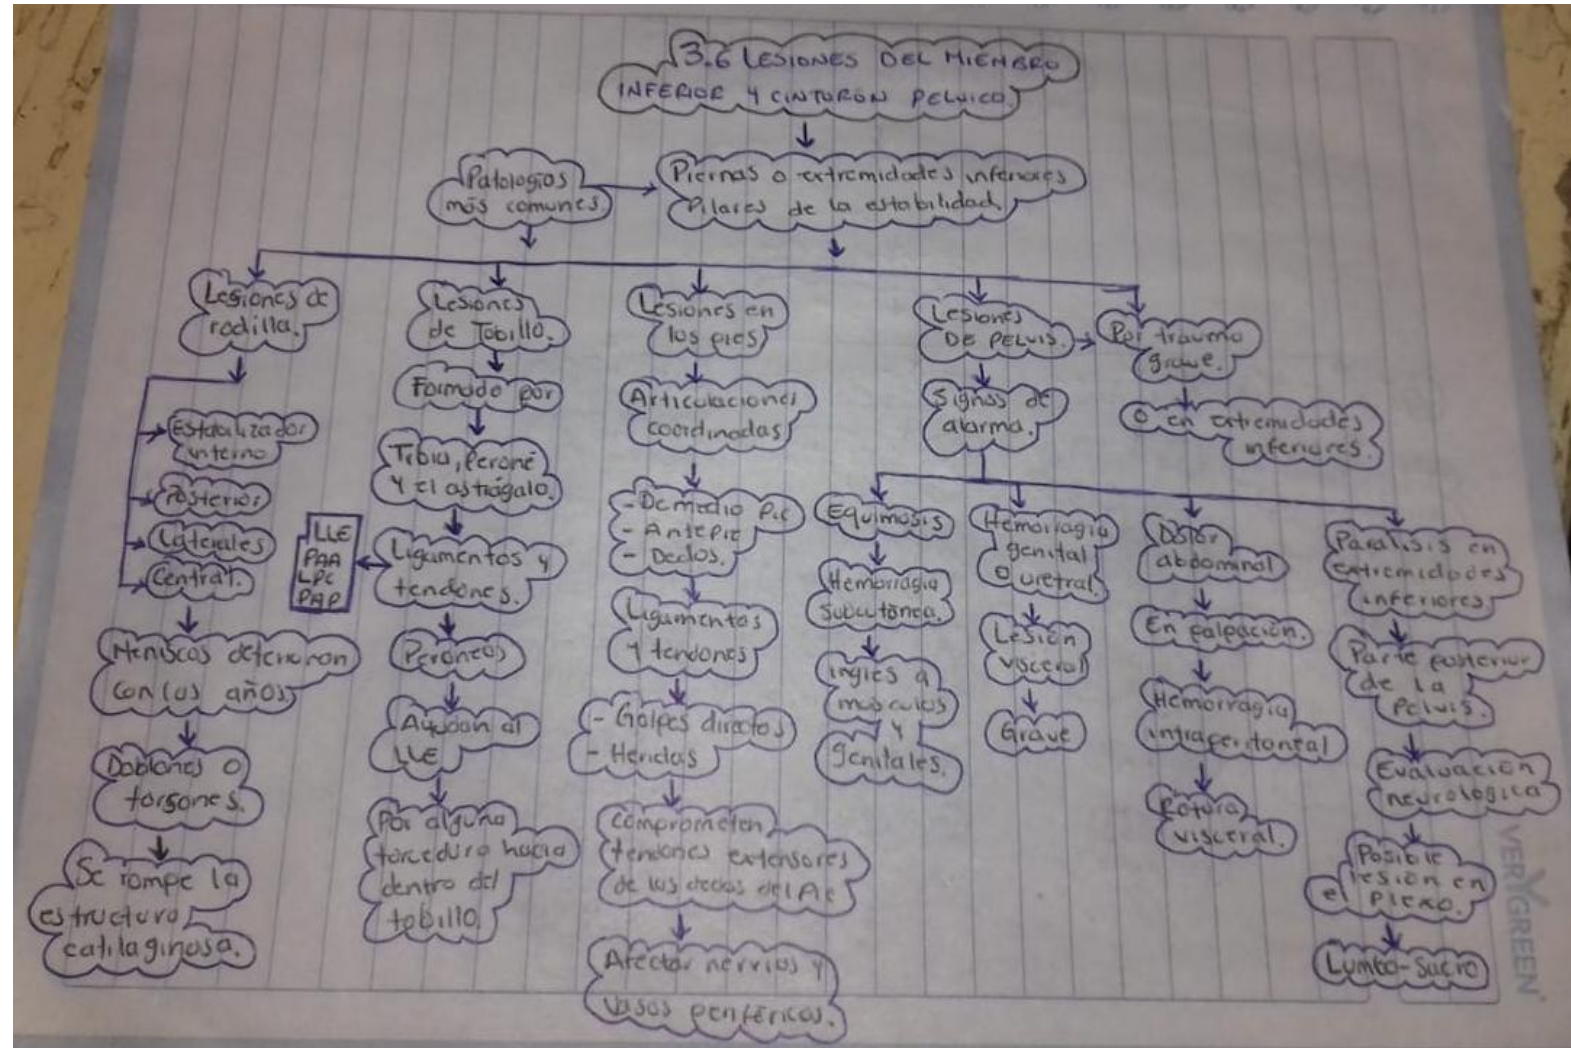 3.6 LESIONES DEL MIEMBRO
INFERIOR Y CINTURON PELVICO.
Patologias
más comunes
Piernas o extremidades inferiores
Pilares de la estabilidad.
Lesiones de
rodilla.
Estabilizador
interno
Posterior
Laterales
Central.
Meniscos deterioran
con los años.
Doblones o
torsones.
Se rompe la
estructura
catilaginosa.
Lesiones
de Tobillo.
Formado por
Tibia, Peroné
y el astrágalo.
Ligamentos y
tendones.
LLE
PAA
LPC
PAP
Peroneos
Ayudan al
LLE
Por alguna
torcedura hacia
dentro del
tobillo.
Lesiones en
los pies
Articulaciones
coordinadas
- De medio Pie
- Antepie
- Dedos.
Ligamentos
y tendones
- Golpes directos
- Heridas
Comprometen
tendones extensores
de los dedos del Pie
Afectar nervios y
vasos periféricos.
Lesiones
DE PELVIS.
Por trauma
grave.
O en extremidades
inferiores.
Signos de
alarma.
Equimosis
Hemorragia
subcutánea.
ingles a
musculos
y
genitales.
Hemorragia
genital
o uretral.
Lesión
visceral
Grave
Dolor
abdominal
En palpación.
Hemorragia
intraperitoneal
Rotura
visceral.
Paralisis en
extremidades
inferiores.
Parte posterior
de la
Pelvis.
Evaluación
neurologica
Posible
lesión en
el Plexo.
Lumbo-Sacro
VERYGREEN